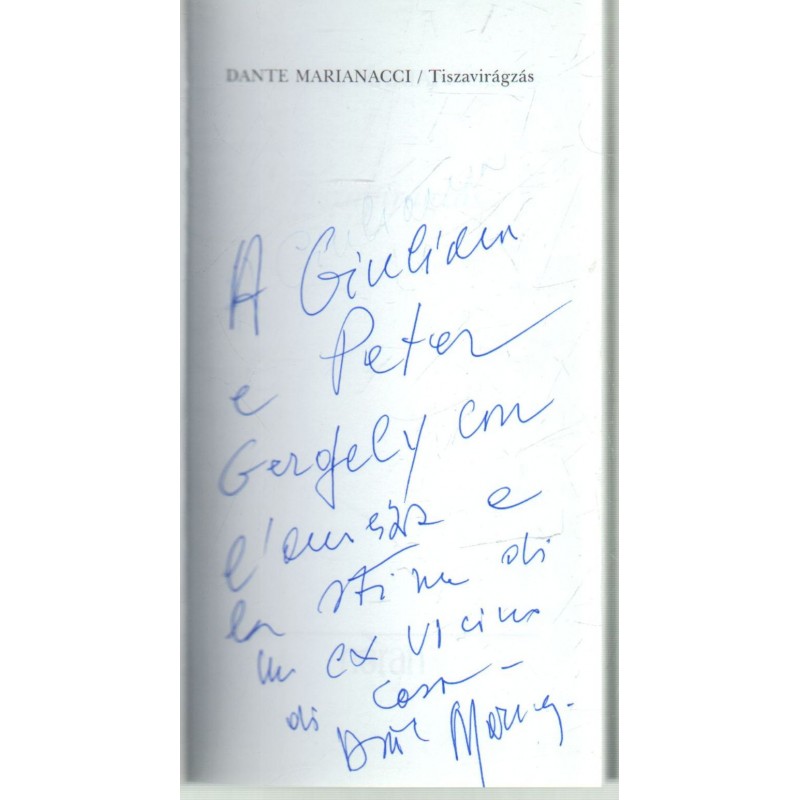 DANTE MARIANACCI / Tiszavirágzás
A Giuliana
e Peter
Gergely con
l'amicizia e
la stima di
un ex vicino
di casa -
Dante Marianacci